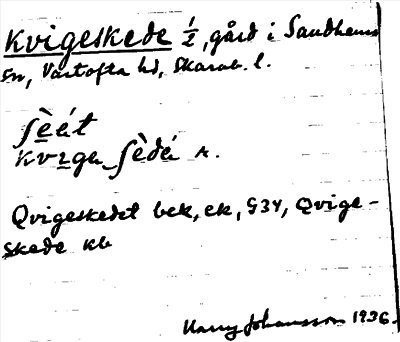 Kvigeskede ½, gård i Sandhems
sn, Vartofta hd, Skarab. l.
ʃèét
kvɪga_ʃèdé A.
Qvigeskedet bek, ek, G34, Qvige-
skede kb
Harry Johansson 1936.